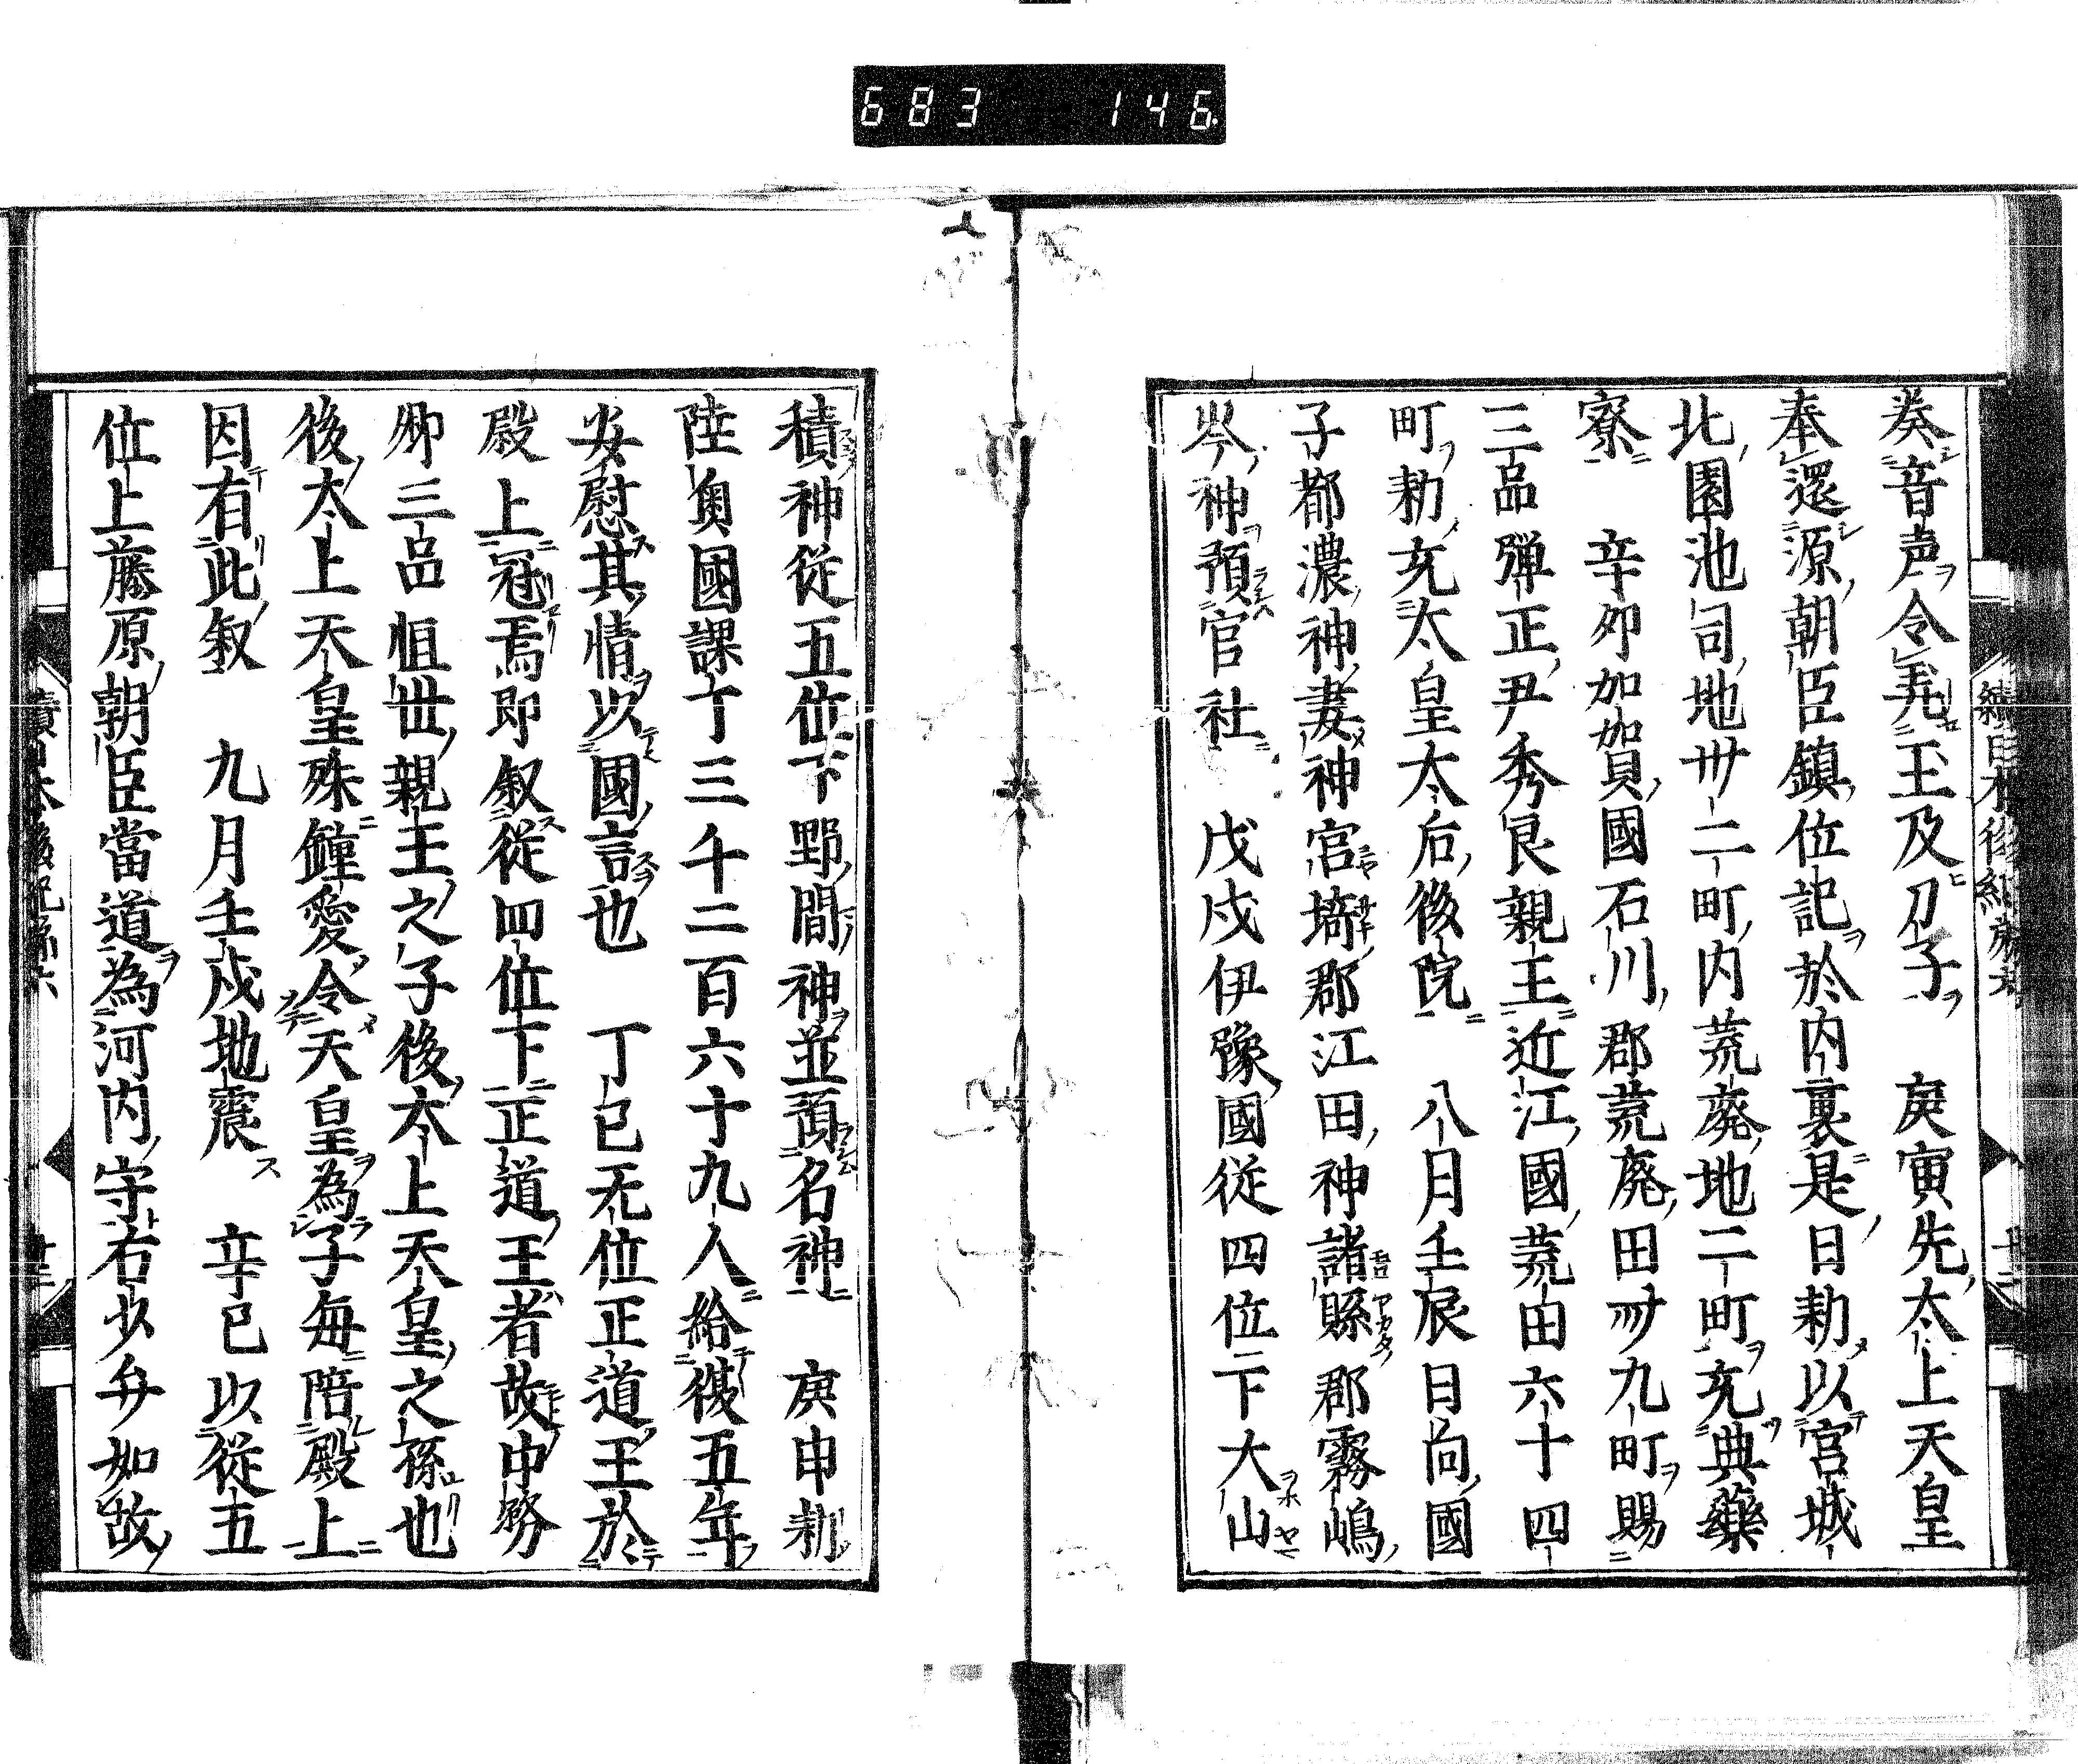 683 146
癸音声令弄玉及刀子　庚寅先太上天皇
奉還源朝臣鎮位記於内裏是日勅以宮城
北園池司地卅二町内荒廃地二町充典藥
寮　辛卯加加賀國石川郡荒廃田卌九町賜
三品弾正尹秀良親王近江國荒田六十四
町勅充太皇太后後院　八月壬辰日向國
子都濃神妻神官埼郡江田神諸縣郡霧嶋
岑神預官社　戊戌伊豫國従四位下大山
積神従五位下野間神並預名神　庚申勅
陸奥國課丁三千二百六十九人給復五年
安慰其情以國言也　丁巳无位正道王於
殿上冠焉即叙從四位下正道王者故中務
卿三品恒世親王之子後太上天皇之孫也
後太上天皇殊鍾愛令天皇為子毎陪殿上
因有此叙　九月壬戌地震　辛巳以從五
位上藤原朝臣當道為河内守右少弁如故